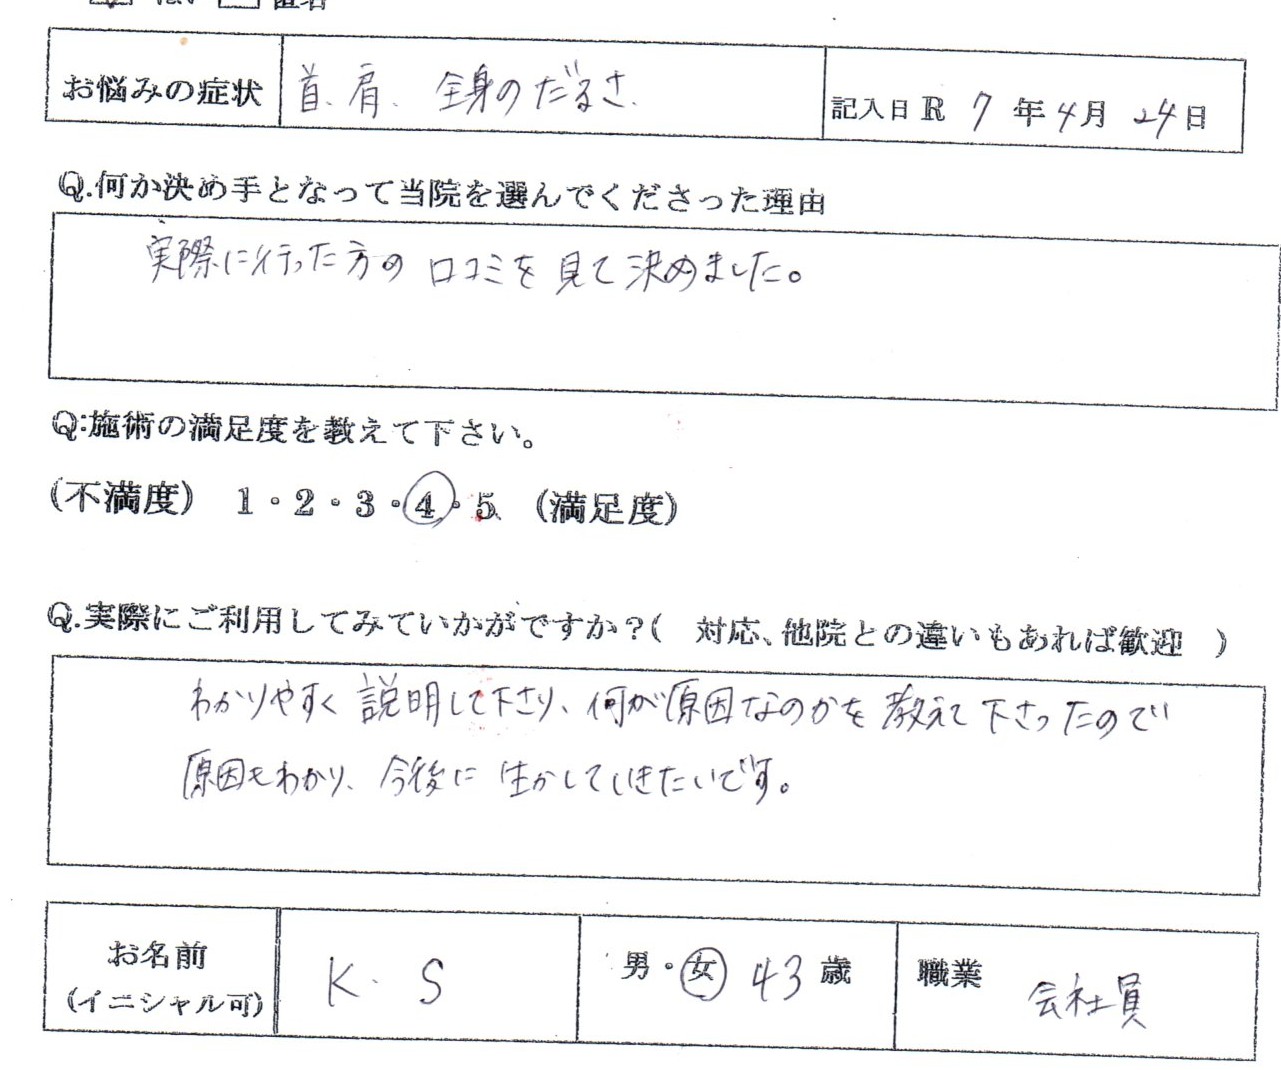 匿名
お悩みの症状 首、肩、全身のだるさ、 記入日 R 7 年 4 月 24 日
Q.何か決め手となって当院を選んでくださった理由
実際に行った方の口コミを見て決めました。
Q:施術の満足度を教えて下さい。
(不満度) 1・2・3・4・5 (満足度)
Q.実際にご利用してみていかがですか?( 対応、他院との違いもあれば歓迎 )
わかりやすく説明して下さり、何が原因なのかを教えて下さったので
原因もわかり、今後に生かしていきたいです。
お名前 K. S 男・女 43 歳 職業 会社員
(イニシャル可)